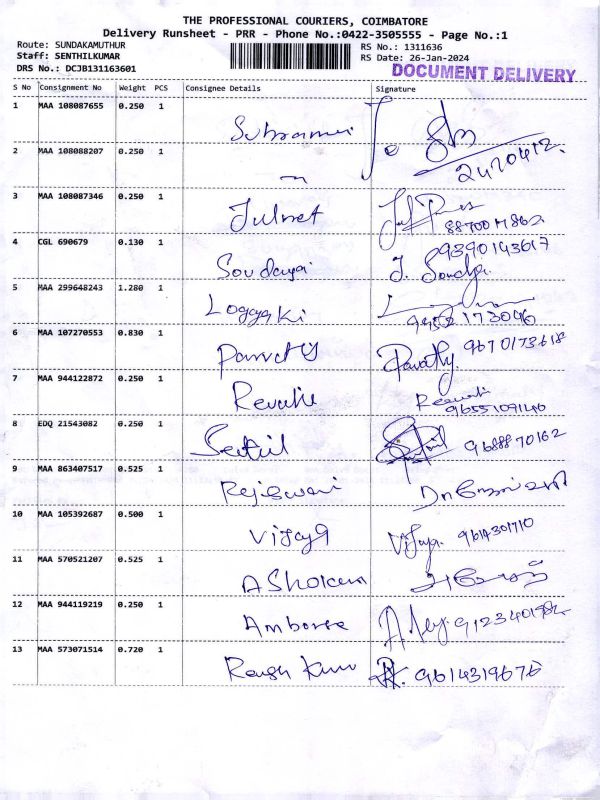 THE PROFESSIONAL COURIERS, COIMBATORE
Delivery Runsheet - PRR - Phone No.:0422-3505555 - Page No.:1
Route: SUNDAKAMUTHUR RS No.: 1311636
Staff: SENTHILKUMAR RS Date: 26-Jan-2024
DRS No.: DCJB131163601 DOCUMENT DELIVERY
S No Consignment No Weight PCS Consignee Details Signature
1 MAA 108087655 0.250 1
2 MAA 108088207 0.250 1
3 MAA 108087346 0.250 1 Julnet
4 CGL 690679 0.130 1 Soudaya 9390143617
5 MAA 299648243 1.280 1 Logayaki
6 MAA 107270553 0.830 1 Parvathy 9670173618
7 MAA 944122872 0.250 1 Revathi Reevathi 96551091140
8 EDQ 21543082 0.250 1 Senthil 9688870162
9 MAA 863407517 0.525 1 Rajeswari
10 MAA 105392687 0.500 1 Vijaya Vijaya. 9614301710
11 MAA 570521207 0.525 1 AShokan
12 MAA 944119219 0.250 1 Ambrose
13 MAA 573071514 0.720 1 9614319676